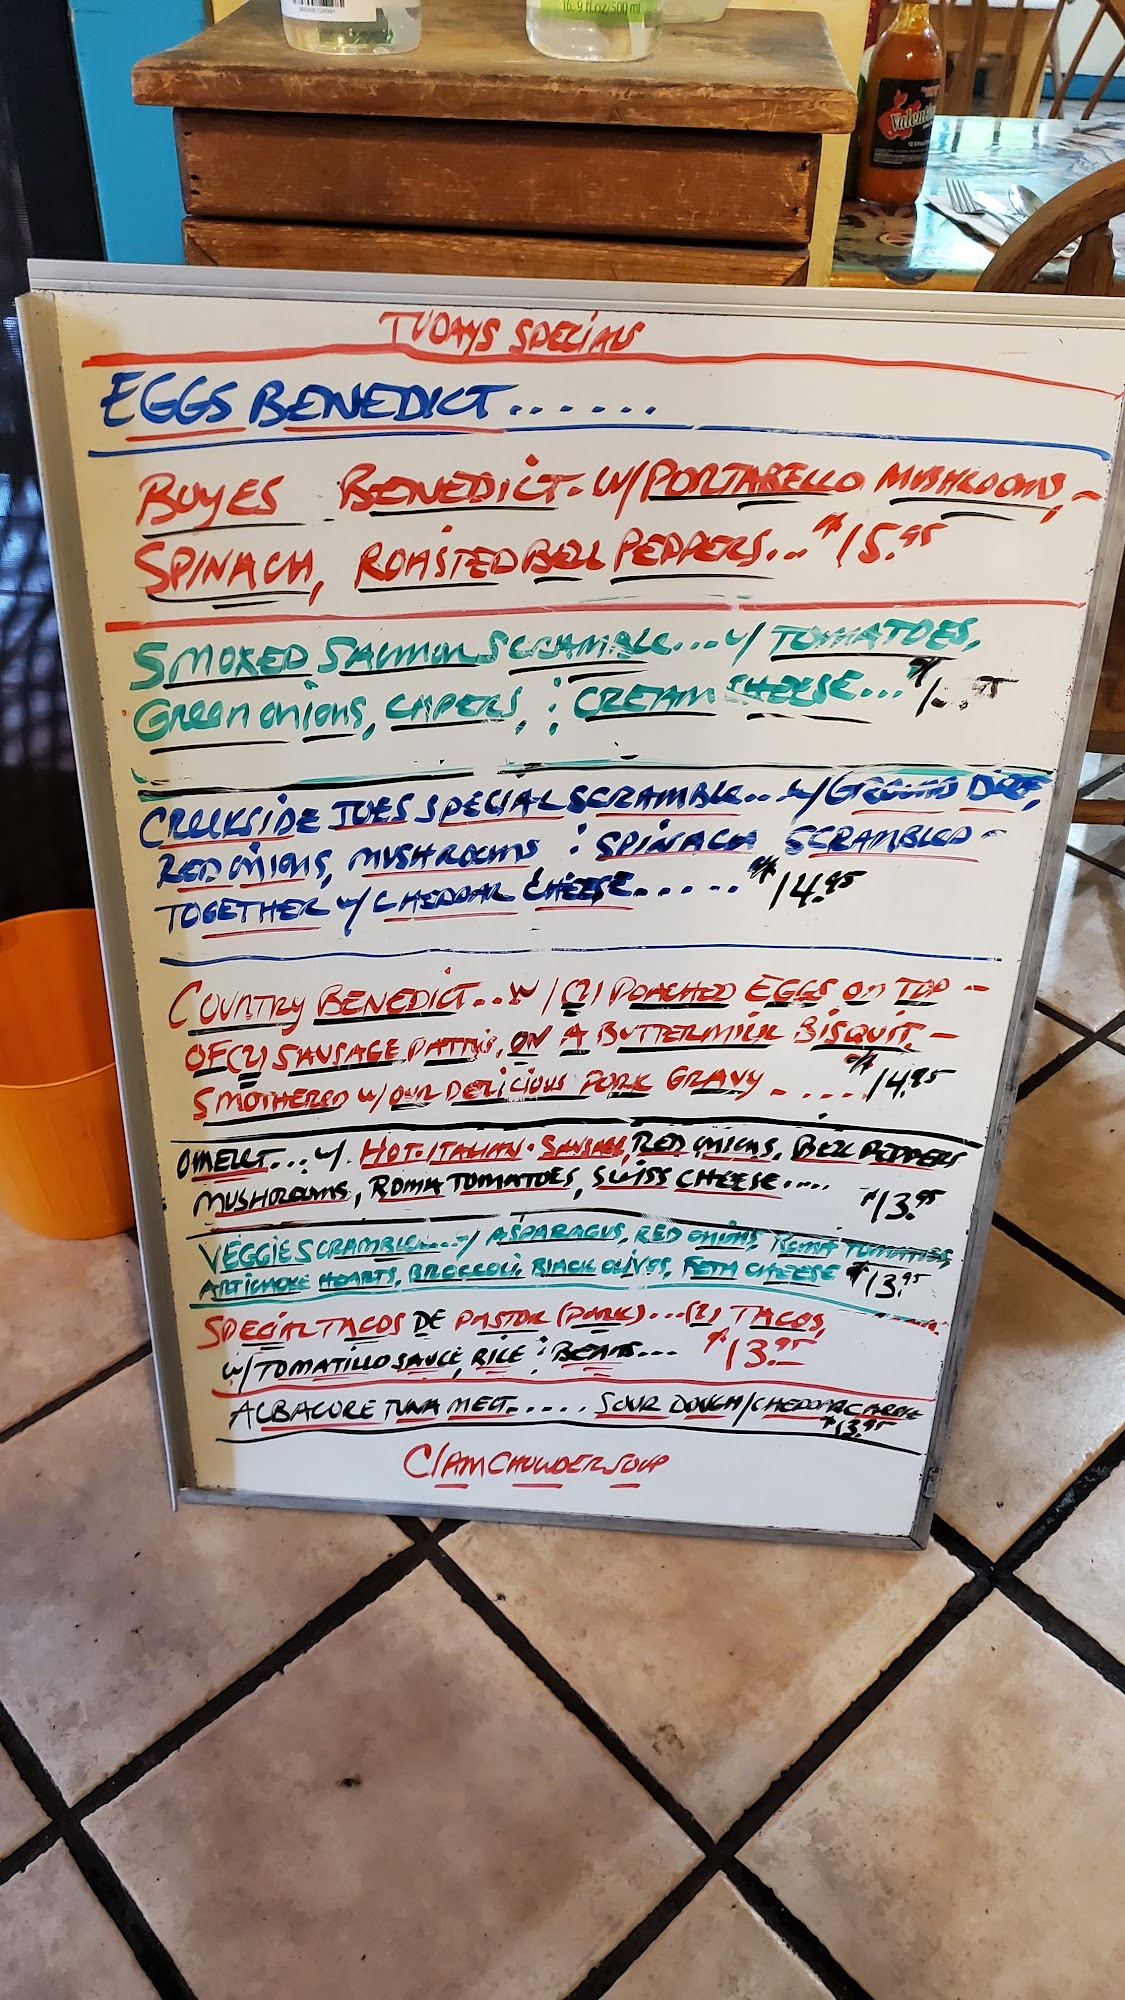 16.9 fl.oz/500 ml
Valentina
TODAYS SPECIALS
EGGS BENEDICT......
BUYES BENEDICT. W/PORTABELLO MUSHROOMS, -
SPINACH, ROASTED BELL PEPPERS... $15.95
SMOKED SALMON SCRAMBLE... w/ TOMATOES,
GREEN ONIONS, CAPERS, & CREAM CHEESE...
CREEKSIDE JOES SPECIAL SCRAMBLE... w/ GROUND
RED ONIONS, MUSHROOMS & SPINACH SCRAMBLED -
TOGETHER w/ CHEDDAR CHEESE...... $14.95
COUNTRY BENEDICT... W/ (2) POACHED EGGS ON TOP -
OF (2) SAUSAGE PATTYS, ON A BUTTERMILK BISQUIT, -
SMOTHERED w/ OUR DELICIOUS PORK GRAVY ..... $14.95
OMELET... w/ HOT-ITALIAN-SAUSAGE, RED ONIONS, BELL PEPPERS
MUSHROOMS, ROMA TOMATOES, SWISS CHEESE..... $13.95
VEGGIE SCRAMBLE.... w/ ASPARAGUS, RED ONIONS, ROMA TOMATOES,
ARTICHOKE HEARTS, BROCCOLI, BLACK OLIVES, FETA CHEESE $13.95
SPECIAL TACOS DE PASTOR (PORK)...(2) TACOS,
w/ TOMATILLO SAUCE, RICE & BEANS... $13.95
ALBACORE TUNA MELT..... SOUR DOUGH/CHEDDAR
$13.95
CLAM CHOWDER SOUP